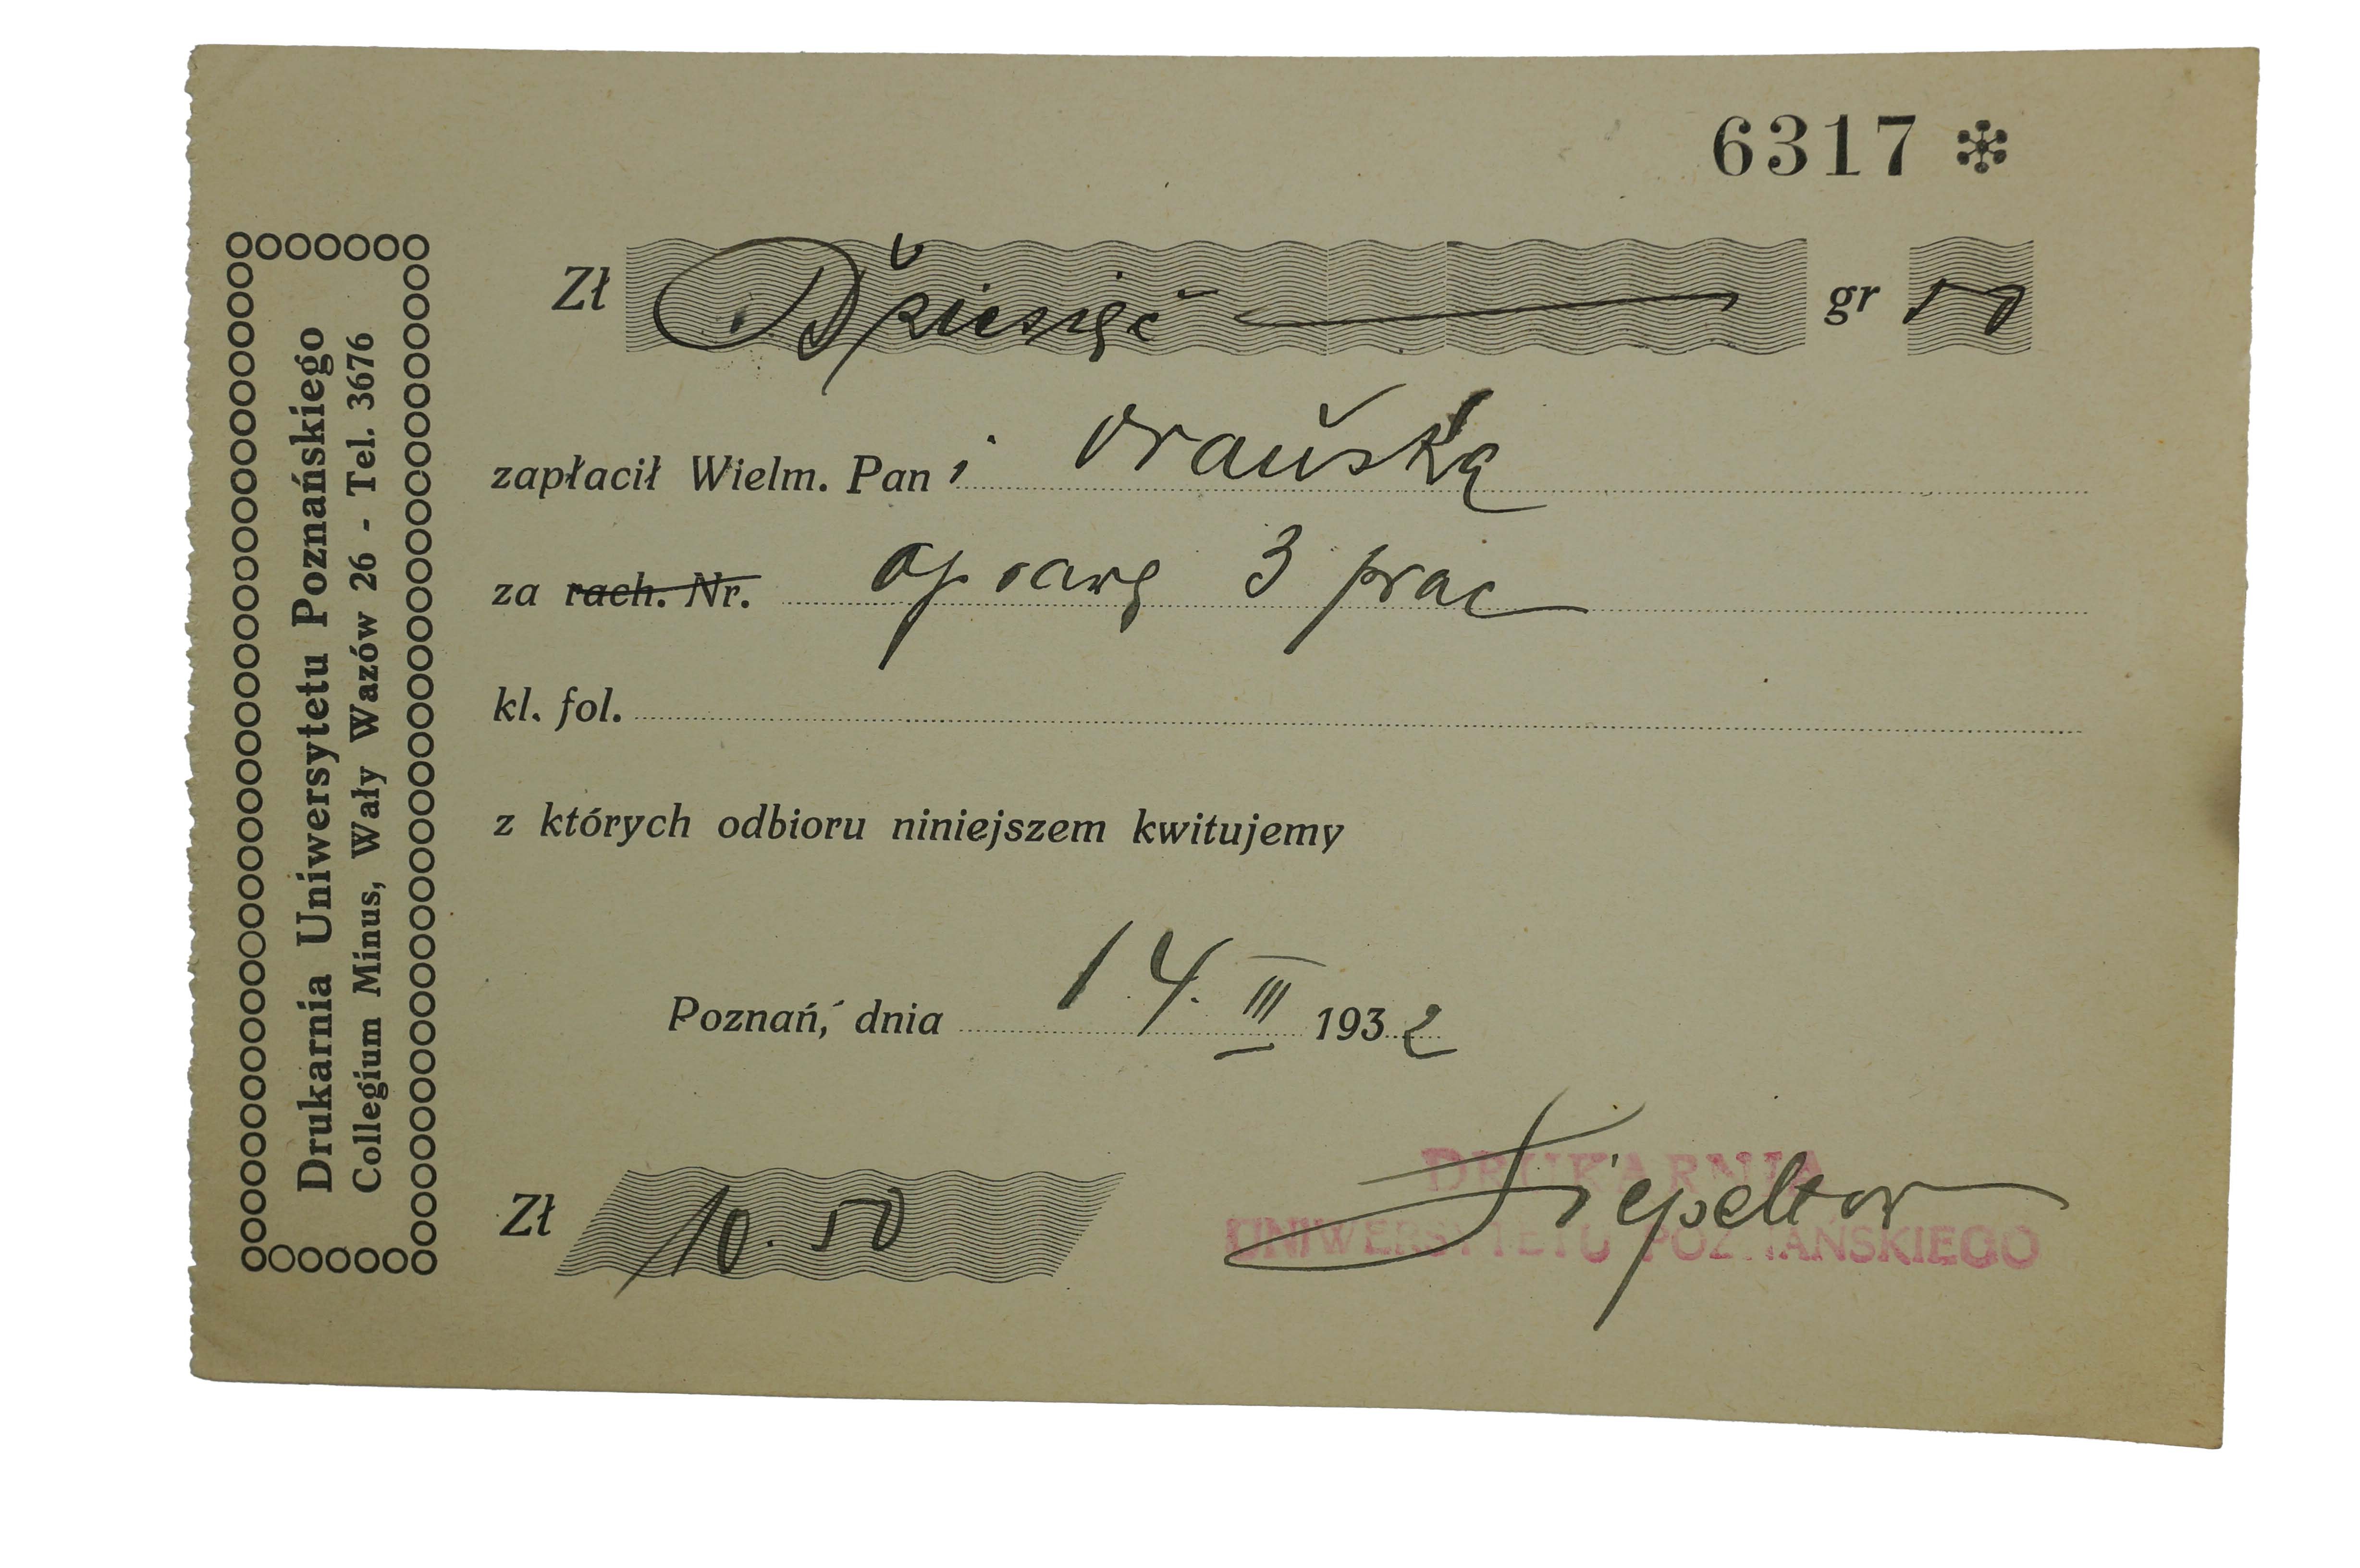 6317
Zł Dziesięć gr 50
zapłacił Wielm. Pan i
za rach. Nr. oprawę 3 prac
kl. fol.
z których odbioru niniejszem kwitujemy
Poznań, dnia 14. III 1932
Zł 10.50
DRUKARNIA
UNIWERSYTETU POZNAŃSKIEGO
Drukarnia Uniwersytetu Poznańskiego
Collegium Minus, Wały Wazów 26 - Tel. 3676